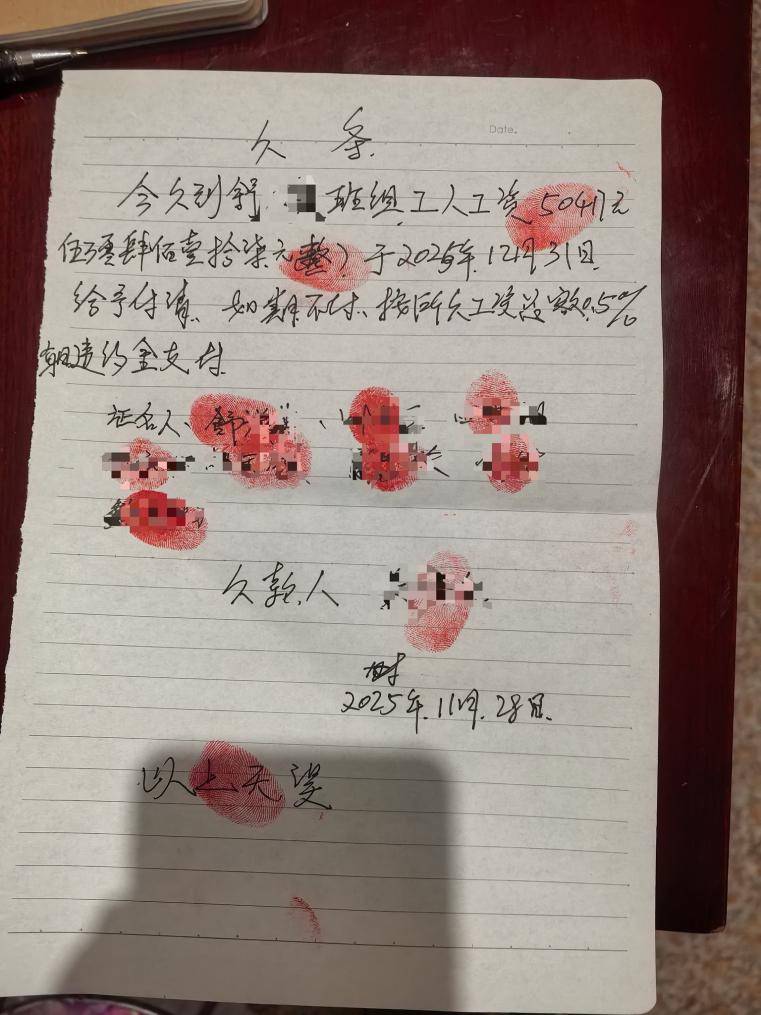 Date.
欠 条.
今欠到舒 班组.工人工资50417元
伍万零肆佰壹拾柒元(整)于2025年.12月31日.
给予付清、如期不付、按所欠工资总数0.5%
违约金支付.
证名人、舒
欠款人
2025年.11月.28日.
以上无误